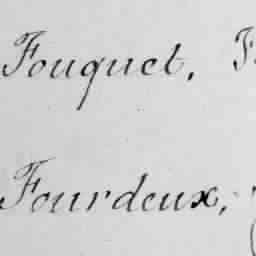 Fouquet, F
Fourdeux,